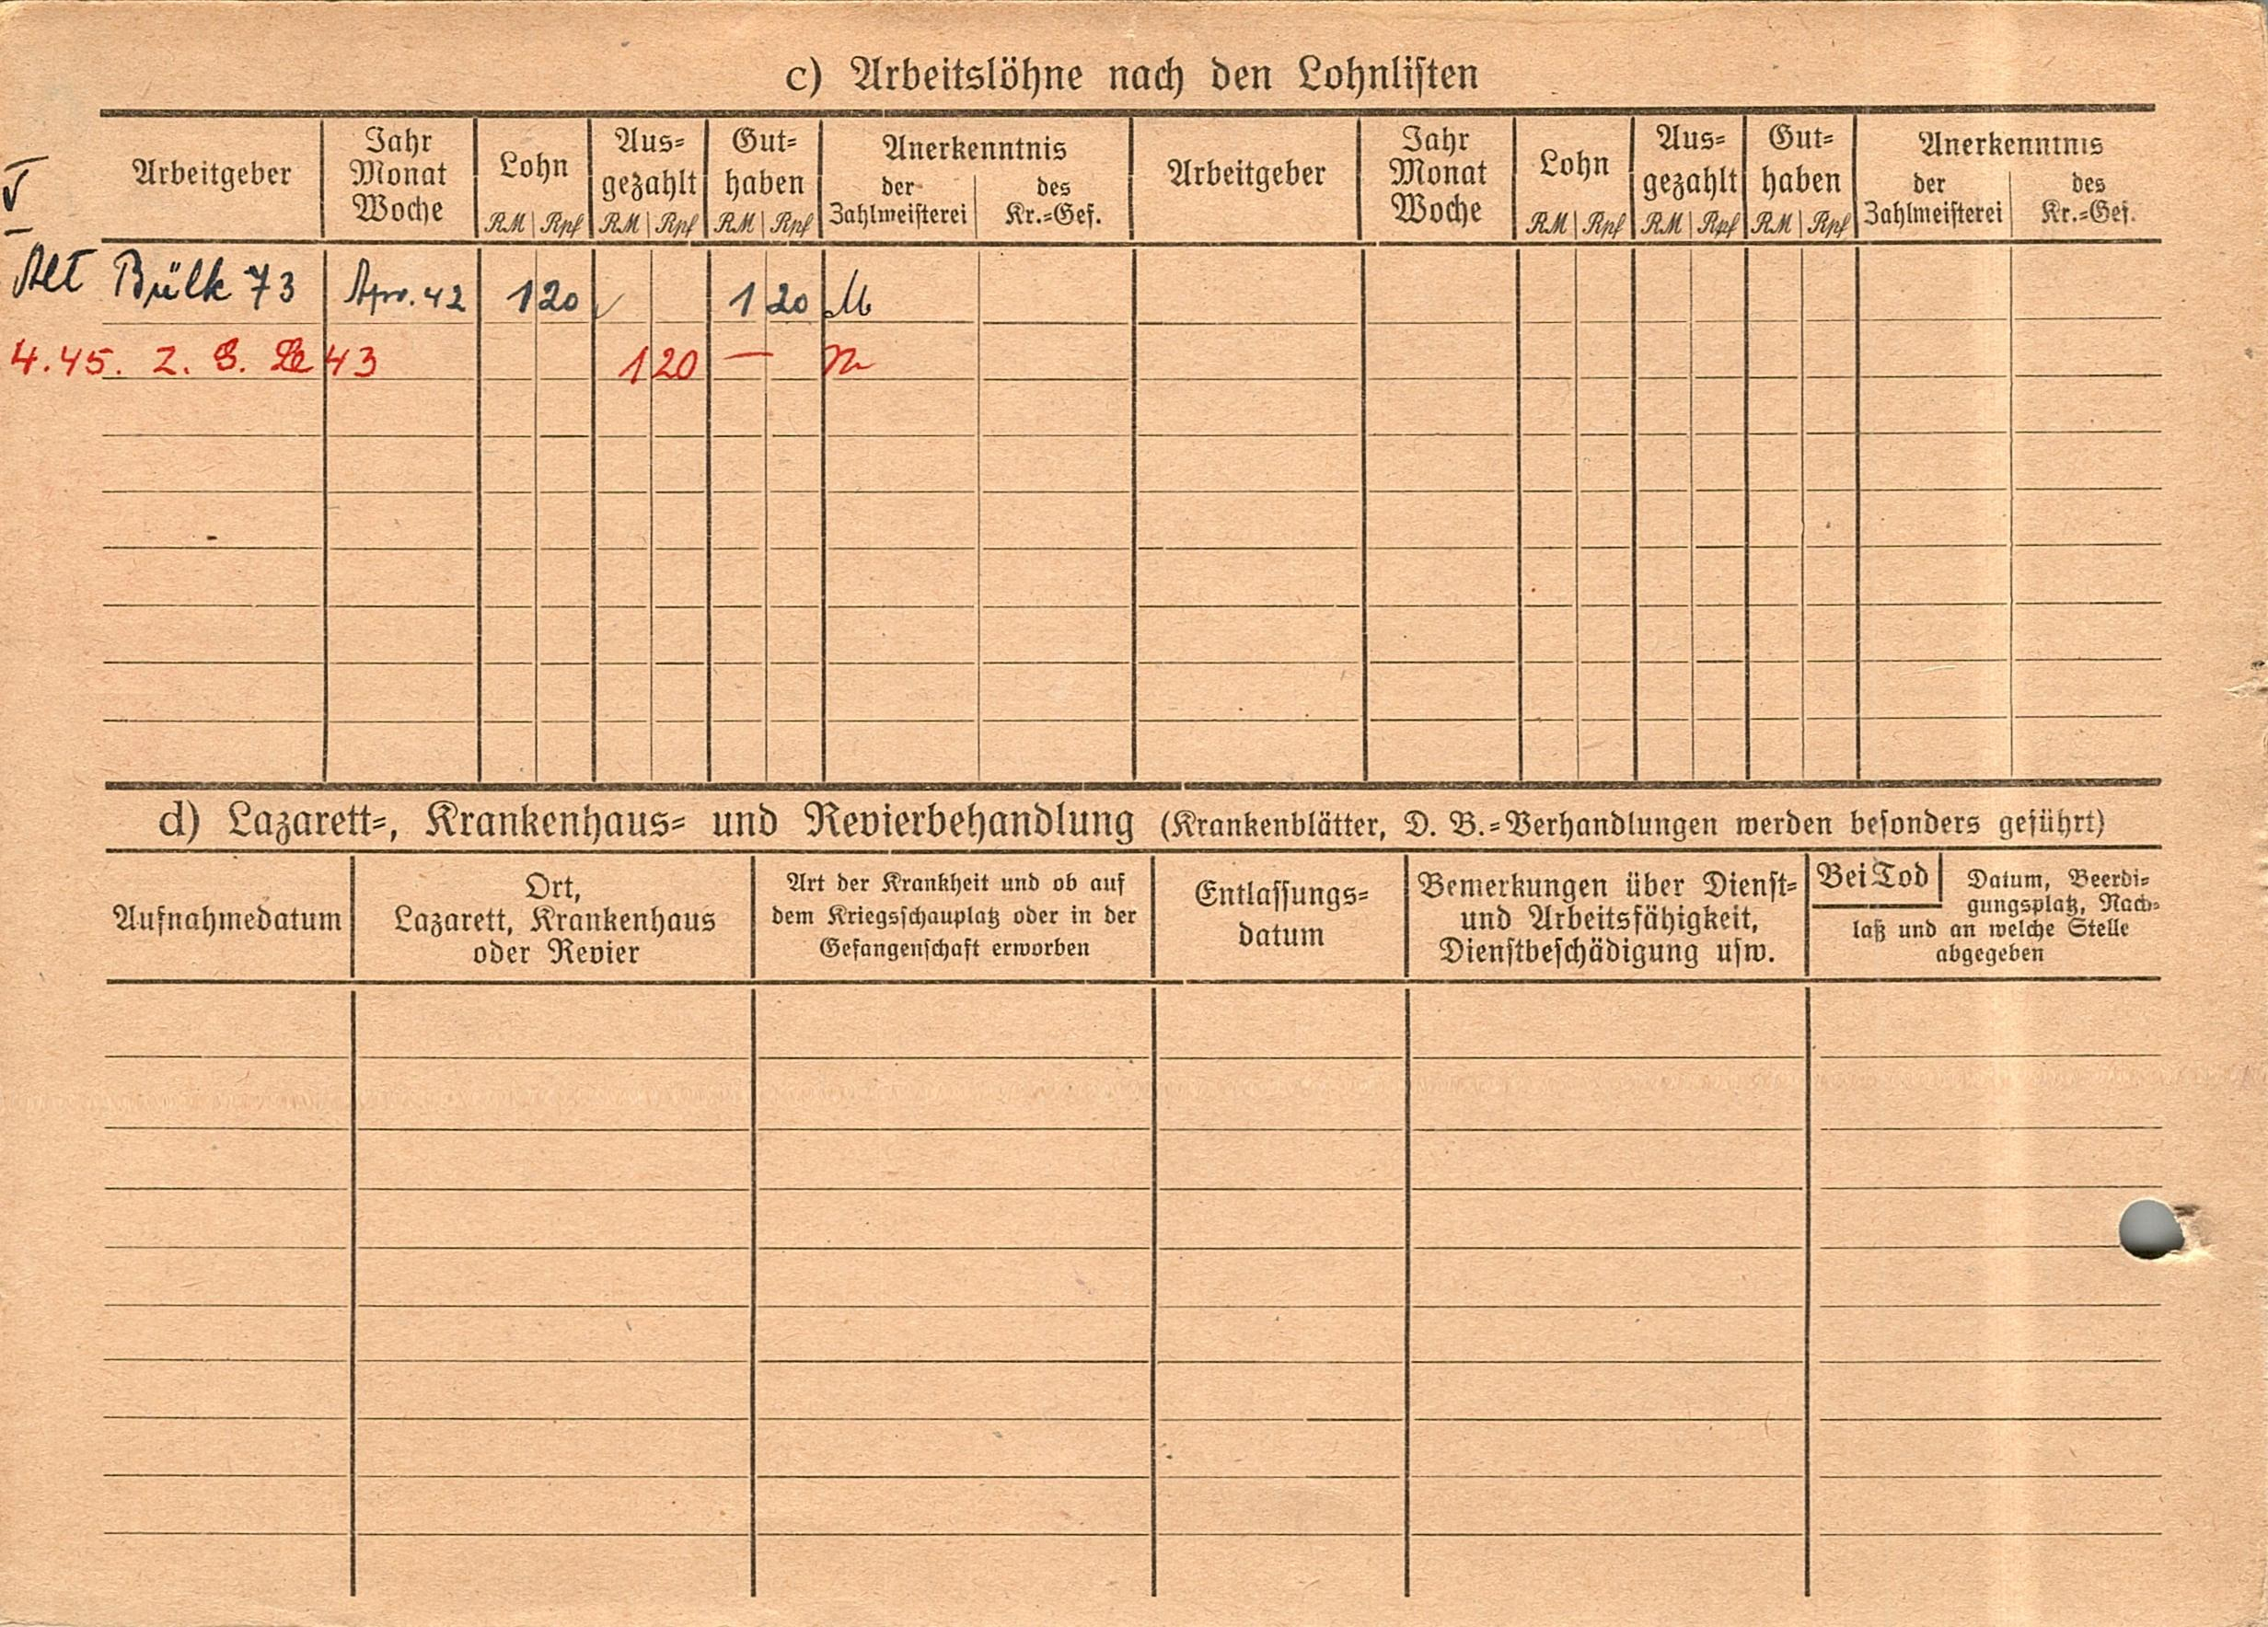 c) Arbeitslöhne nach den Lohnlisten
Arbeitgeber
Jahr
Monat
Woche
Lohn
RM Rpf
Aus-
gezahlt
RM Rpf
Gut-
haben
RM Rpf
Anerkenntnis
der
Zahlmeisterei
des
Kr.-Gef.
Arbeitgeber
Jahr
Monat
Woche
Lohn
RM Rpf
Aus-
gezahlt
RM Rpf
Gut-
haben
RM Rpf
Anerkenntnis
der
Zahlmeisterei
des
Kr.-Gef.
V
Alt Bülk 73 Apr. 42 1 20 1 20
4.45. Z. 43 1 20 —
d) Lazarett-, Krankenhaus- und Revierbehandlung (Krankenblätter, D. B.-Verhandlungen werden besonders geführt)
Aufnahmedatum
Ort,
Lazarett, Krankenhaus
oder Revier
Art der Krankheit und ob auf
dem Kriegsschauplatz oder in der
Gefangenschaft erworben
Entlassungs-
datum
Bemerkungen über Dienst-
und Arbeitsfähigkeit,
Dienstbeschädigung usw.
Bei Tod
Datum, Beerdi-
gungsplatz, Nach-
laß und an welche Stelle
abgegeben